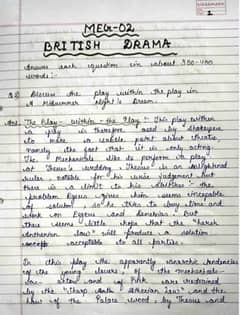 1
MEG-02
BRITISH DRAMA
Answer each question in about 300-400
words:-
Discuss the play within the play in
A Midsummer Night's Dream.
Ans: The Play-Within-the Play: This play within
a play is therefore used by Shakespeare
to make a point about theatre,
namely the fact that it is only acting.
The Mechanicals like to perform a play
at Theseus's wedding. Theseus is an enlightened
ruler notable for his wise judgement but
there is a limit to his abilities:- the
problem Egeus gives him seems incapable
of solution so he tries to buy time and
work on Egeus and Demetrius. But
there seems little hope that the "harsh
Athenian law" will produce a solution
acceptable to all parties.
In this play the apparently anarchic tendencies
of the young lovers, of the mechanicals-
as-actors and of Puck are restrained
by the "sharp Athenian law" and the
law of the Palace Wood, by Theseus and